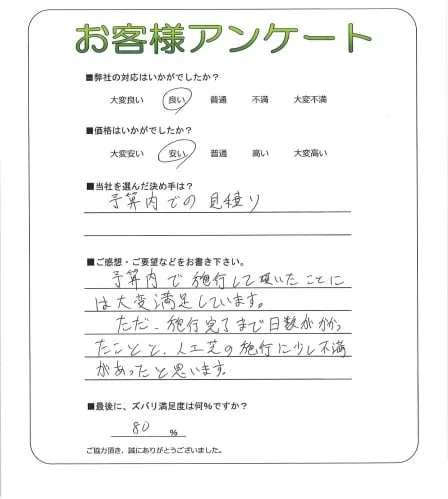 お客様アンケート
■弊社の対応はいかがでしたか?
大変良い 良い 普通 不満 大変不満
■価格はいかがでしたか?
大変安い 安い 普通 高い 大変高い
■当社を選んだ決め手は?
予算内での見積り
■ご感想・ご要望などをお書き下さい。
予算内で施行して頂いたことに
は大変満足しています。
ただ、施行完了まで日数がかかっ
たことと、人工芝の施行に少し不満
があったと思います。
■最後に、ズバリ満足度は何%ですか?
80 %
ご協力頂き、誠にありがとうございました。